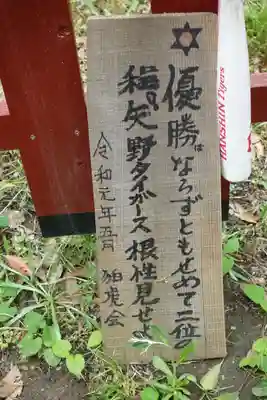 優勝はならずともせめて二位の
猛矢野タイガース根性見せよ
令和元年五月 狛虎会
HANSHIN Tigers